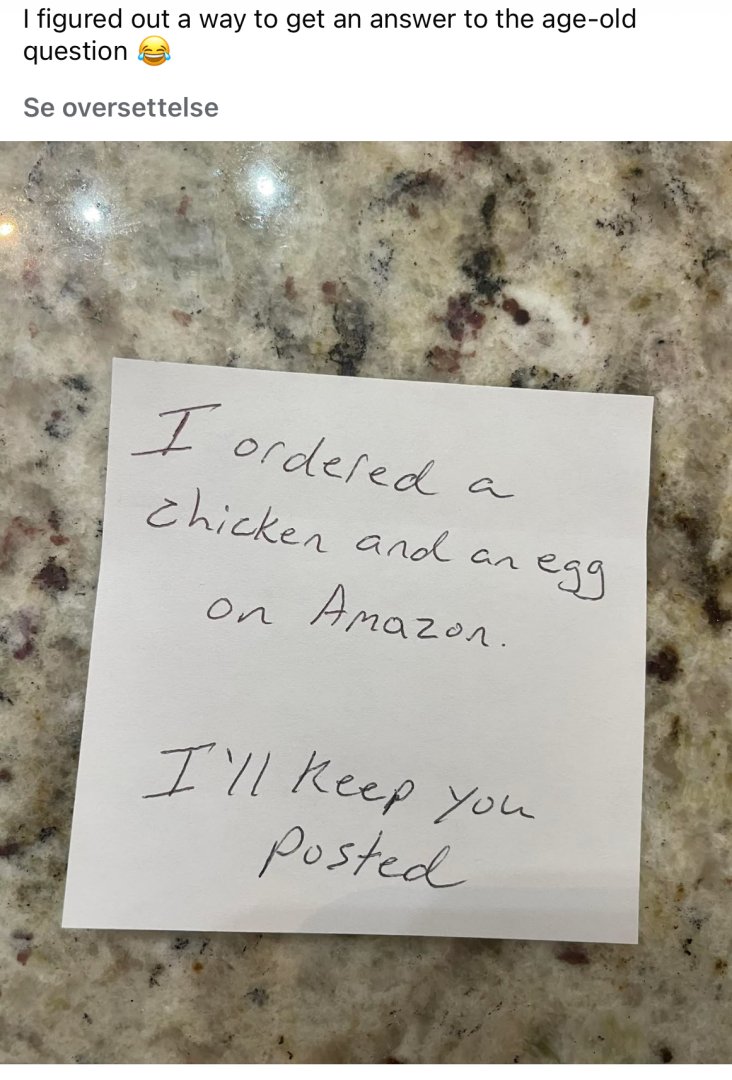 I figured out a way to get an answer to the age-old
question 😂
Se oversettelse
I ordered a
chicken and an egg
on Amazon.
I'll keep you
posted